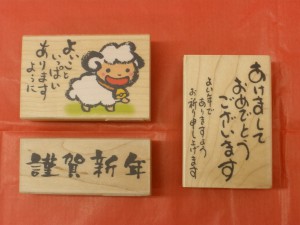 よいこと
いっぱい
あります
ように
謹賀新年
あけまして
おめでとう
ございます
よい年で
ありますよう
お祈り申し上げます